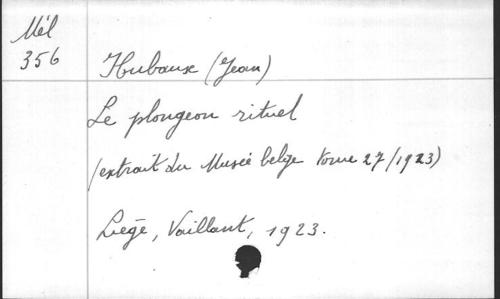 Mél
356
Hubaux (Jean)
Le plongeon rituel
(extrait du Musée belge tome 27/1923)
Liège, Vaillant, 1923.